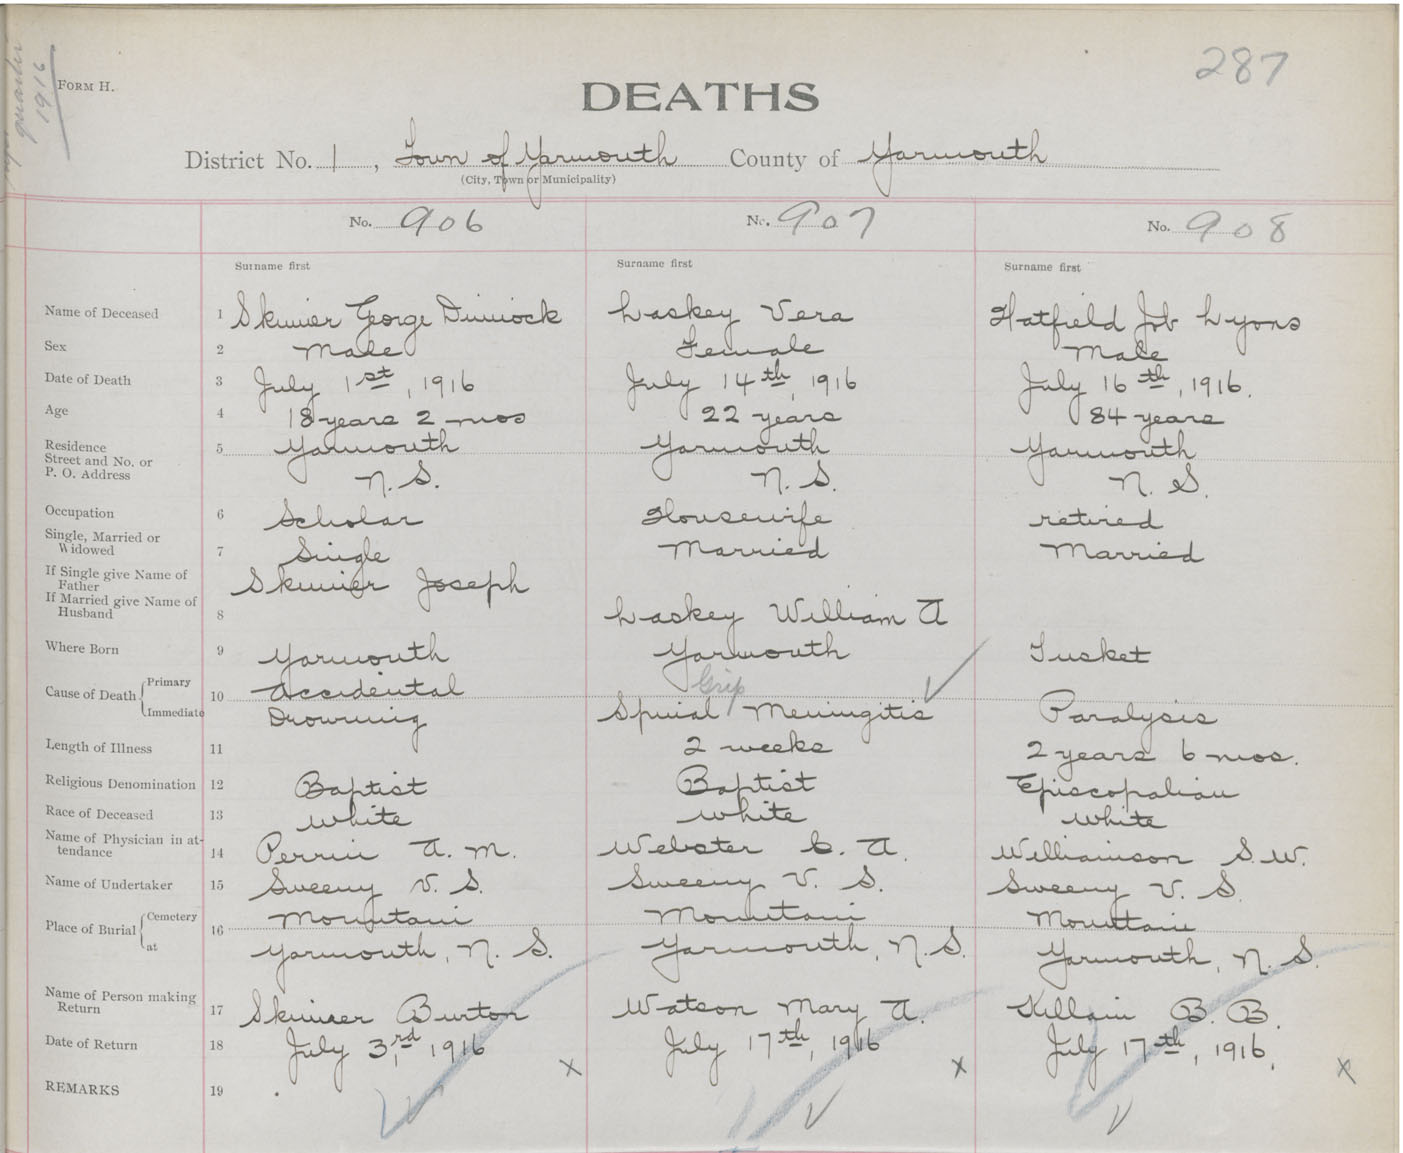 quarter
1916
FORM H.
287
DEATHS
District No. 1, Town of Yarmouth County of Yarmouth
(City, Town or Municipality)
No. 906 No. 907 No. 908
Surname first Surname first Surname first
Name of Deceased 1 Skinner George Dimock Laskey Vera Hatfield Job Lyons
Sex 2 Male Female Male
Date of Death 3 July 1st, 1916 July 14th, 1916 July 16th, 1916.
Age 4 18 years 2 mos 22 years 84 years
Residence
Street and No. or
P. O. Address 5 Yarmouth Yarmouth Yarmouth
N. S. N. S. N. S.
Occupation 6 Scholar Housewife retired
Single, Married or
Widowed 7 Single Married Married
If Single give Name of
Father Skinner Joseph
If Married give Name of
Husband 8 Laskey William A
Where Born 9 Yarmouth Yarmouth Tusket
Cause of Death Primary 10 Accidental Grip
Immediate Drowning Spinal Meningitis Paralysis
Length of Illness 11 2 weeks 2 years 6 mos.
Religious Denomination 12 Baptist Baptist Episcopalian
Race of Deceased 13 White White White
Name of Physician in at-
tendance 14 Perrin A. M. Webster C. A. Williamson S. W.
Name of Undertaker 15 Sweeny V. S. Sweeny V. S. Sweeny V. S.
Place of Burial Cemetery 16 Mountain Mountain Mountain
at Yarmouth, N. S. Yarmouth, N. S. Yarmouth, N. S.
Name of Person making
Return 17 Skinner Burton Watson Mary A. Killam B. B.
Date of Return 18 July 3rd, 1916 July 17th, 1916 July 17th, 1916.
x x x
REMARKS 19